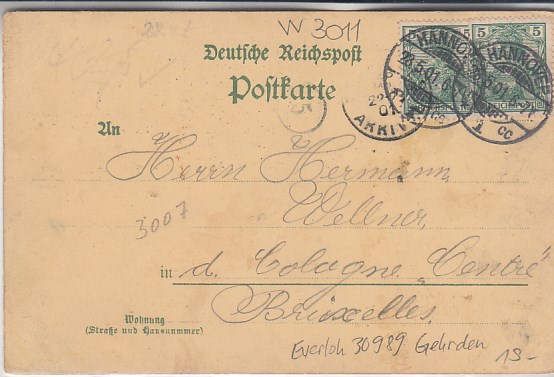 W 3011
Deutsche Reichspost
Postkarte
5 5
HANNOVER
HANNOVER
28.5.01.
1 cc
ARRIV
01
5
An
Herrn Hermann
Wellner,
3007
in d. Cologne „Centre"
Bruxelles.
Wohnung
(Straße und Hausnummer)
Everloh 30989 Gehrden
13-